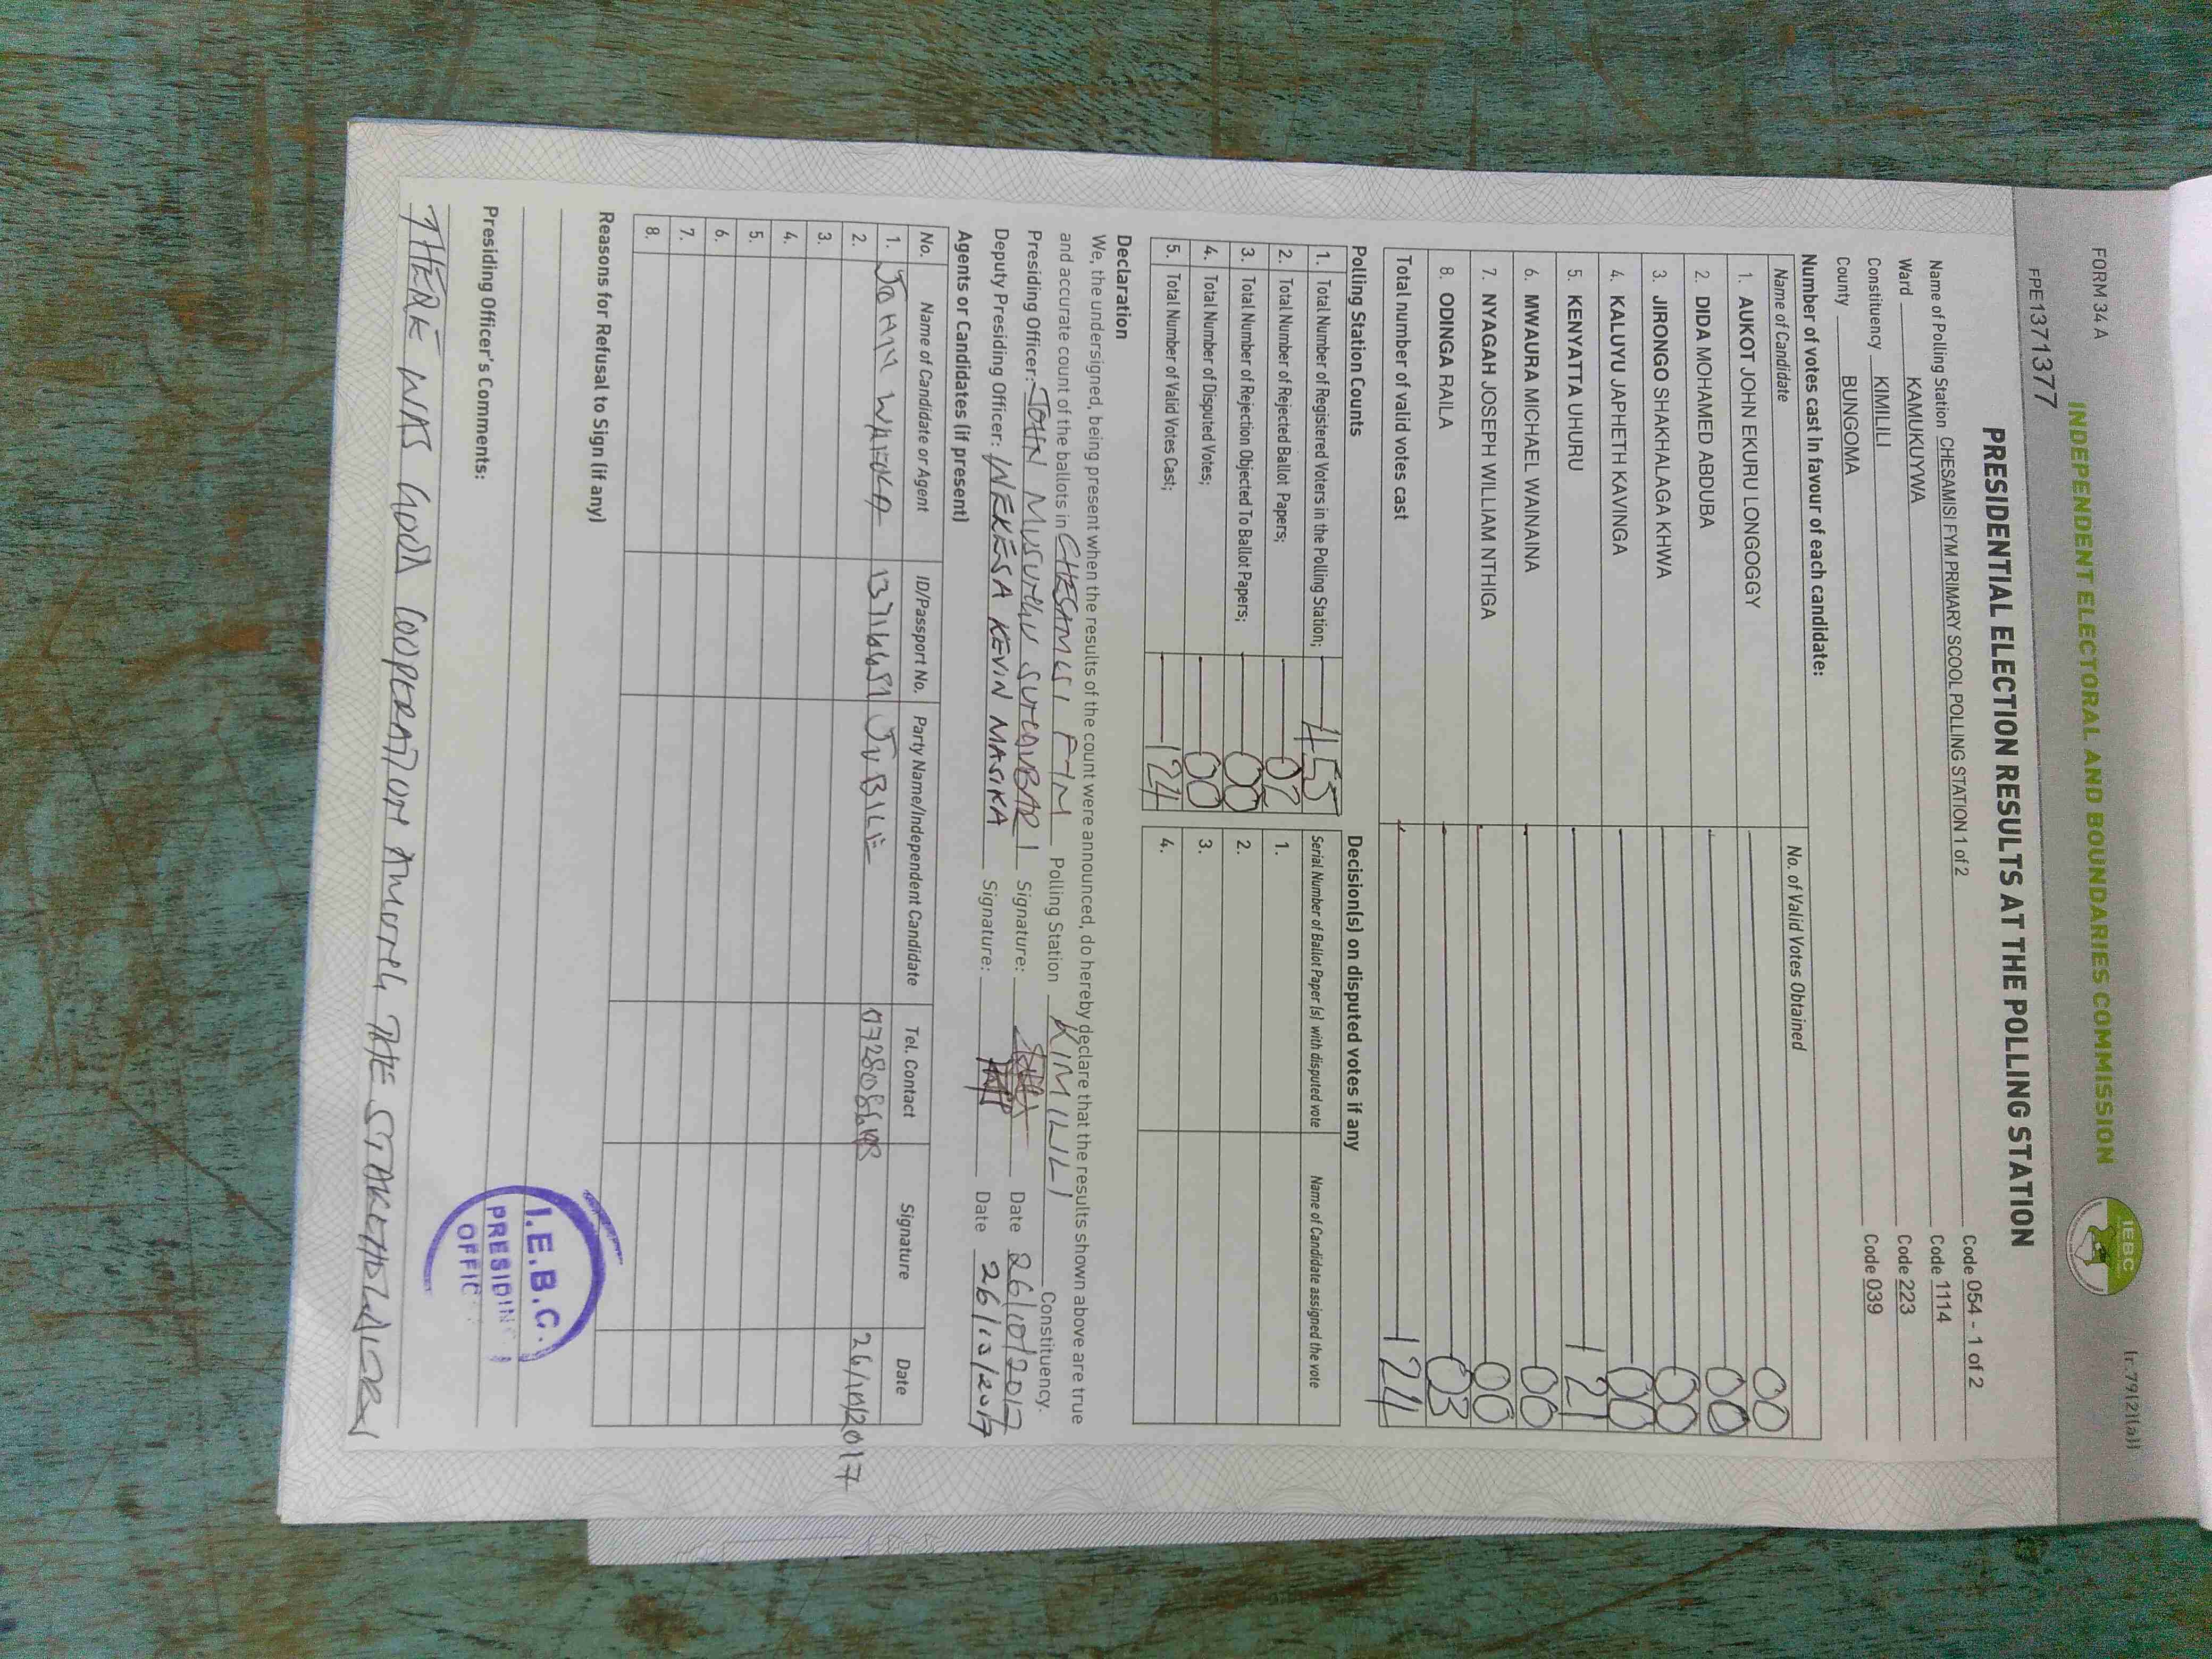 FORM 34 A
(r.79(2)(a))
INDEPENDENT ELECTORAL AND BOUNDARIES COMMISSION
IEBC
FPE1371377
PRESIDENTIAL ELECTION RESULTS AT THE POLLING STATION
Name of Polling Station CHESAMISI FYM PRIMARY SCOOL POLLING STATION 1 of 2 Code 054 - 1 of 2
Ward KAMUKUYWA Code 1114
Constituency KIMILILI Code 223
County BUNGOMA Code 039
Number of votes cast in favour of each candidate:
Name of Candidate No. of Valid Votes Obtained
1. AUKOT JOHN EKURU LONGOGGY 00
2. DIDA MOHAMED ABDUBA 00
3. JIRONGO SHAKHALAGA KHWA 00
4. KALUYU JAPHETH KAVINGA 00
5. KENYATTA UHURU 121
6. MWAURA MICHAEL WAINAINA 00
7. NYAGAH JOSEPH WILLIAM NTHIGA 00
8. ODINGA RAILA 03
Total number of valid votes cast 124
Polling Station Counts
1. Total Number of Registered Voters in the Polling Station; 455
2. Total Number of Rejected Ballot Papers; 02
3. Total Number of Rejection Objected To Ballot Papers; 00
4. Total Number of Disputed Votes; 00
5. Total Number of Valid Votes Cast; 124
Decision(s) on disputed votes if any
Serial Number of Ballot Paper (s) with disputed vote Name of Candidate assigned the vote
1.
2.
3.
4.
Declaration
We, the undersigned, being present when the results of the count were announced, do hereby declare that the results shown above are true
and accurate count of the ballots in CHESAMISI FYM Polling Station KIMILILI Constituency.
Presiding Officer: JOHN Signature: Date 26/10/2017
Deputy Presiding Officer: WEKESA KEVIN MASIKA Signature: Date 26/10/2017
Agents or Candidates (if present)
No. Name of Candidate or Agent ID/Passport No. Party Name/Independent Candidate Tel. Contact Signature Date
1. JOHN JUBILE 26/10/2017
2.
3.
4.
5.
6.
7.
8.
Reasons for Refusal to Sign (if any)
I.E.B.C.
PRESIDING
OFFIC
Presiding Officer's Comments:
THERE WAS GOOD COOPERATION AMONG THE STAKEHOLDERS